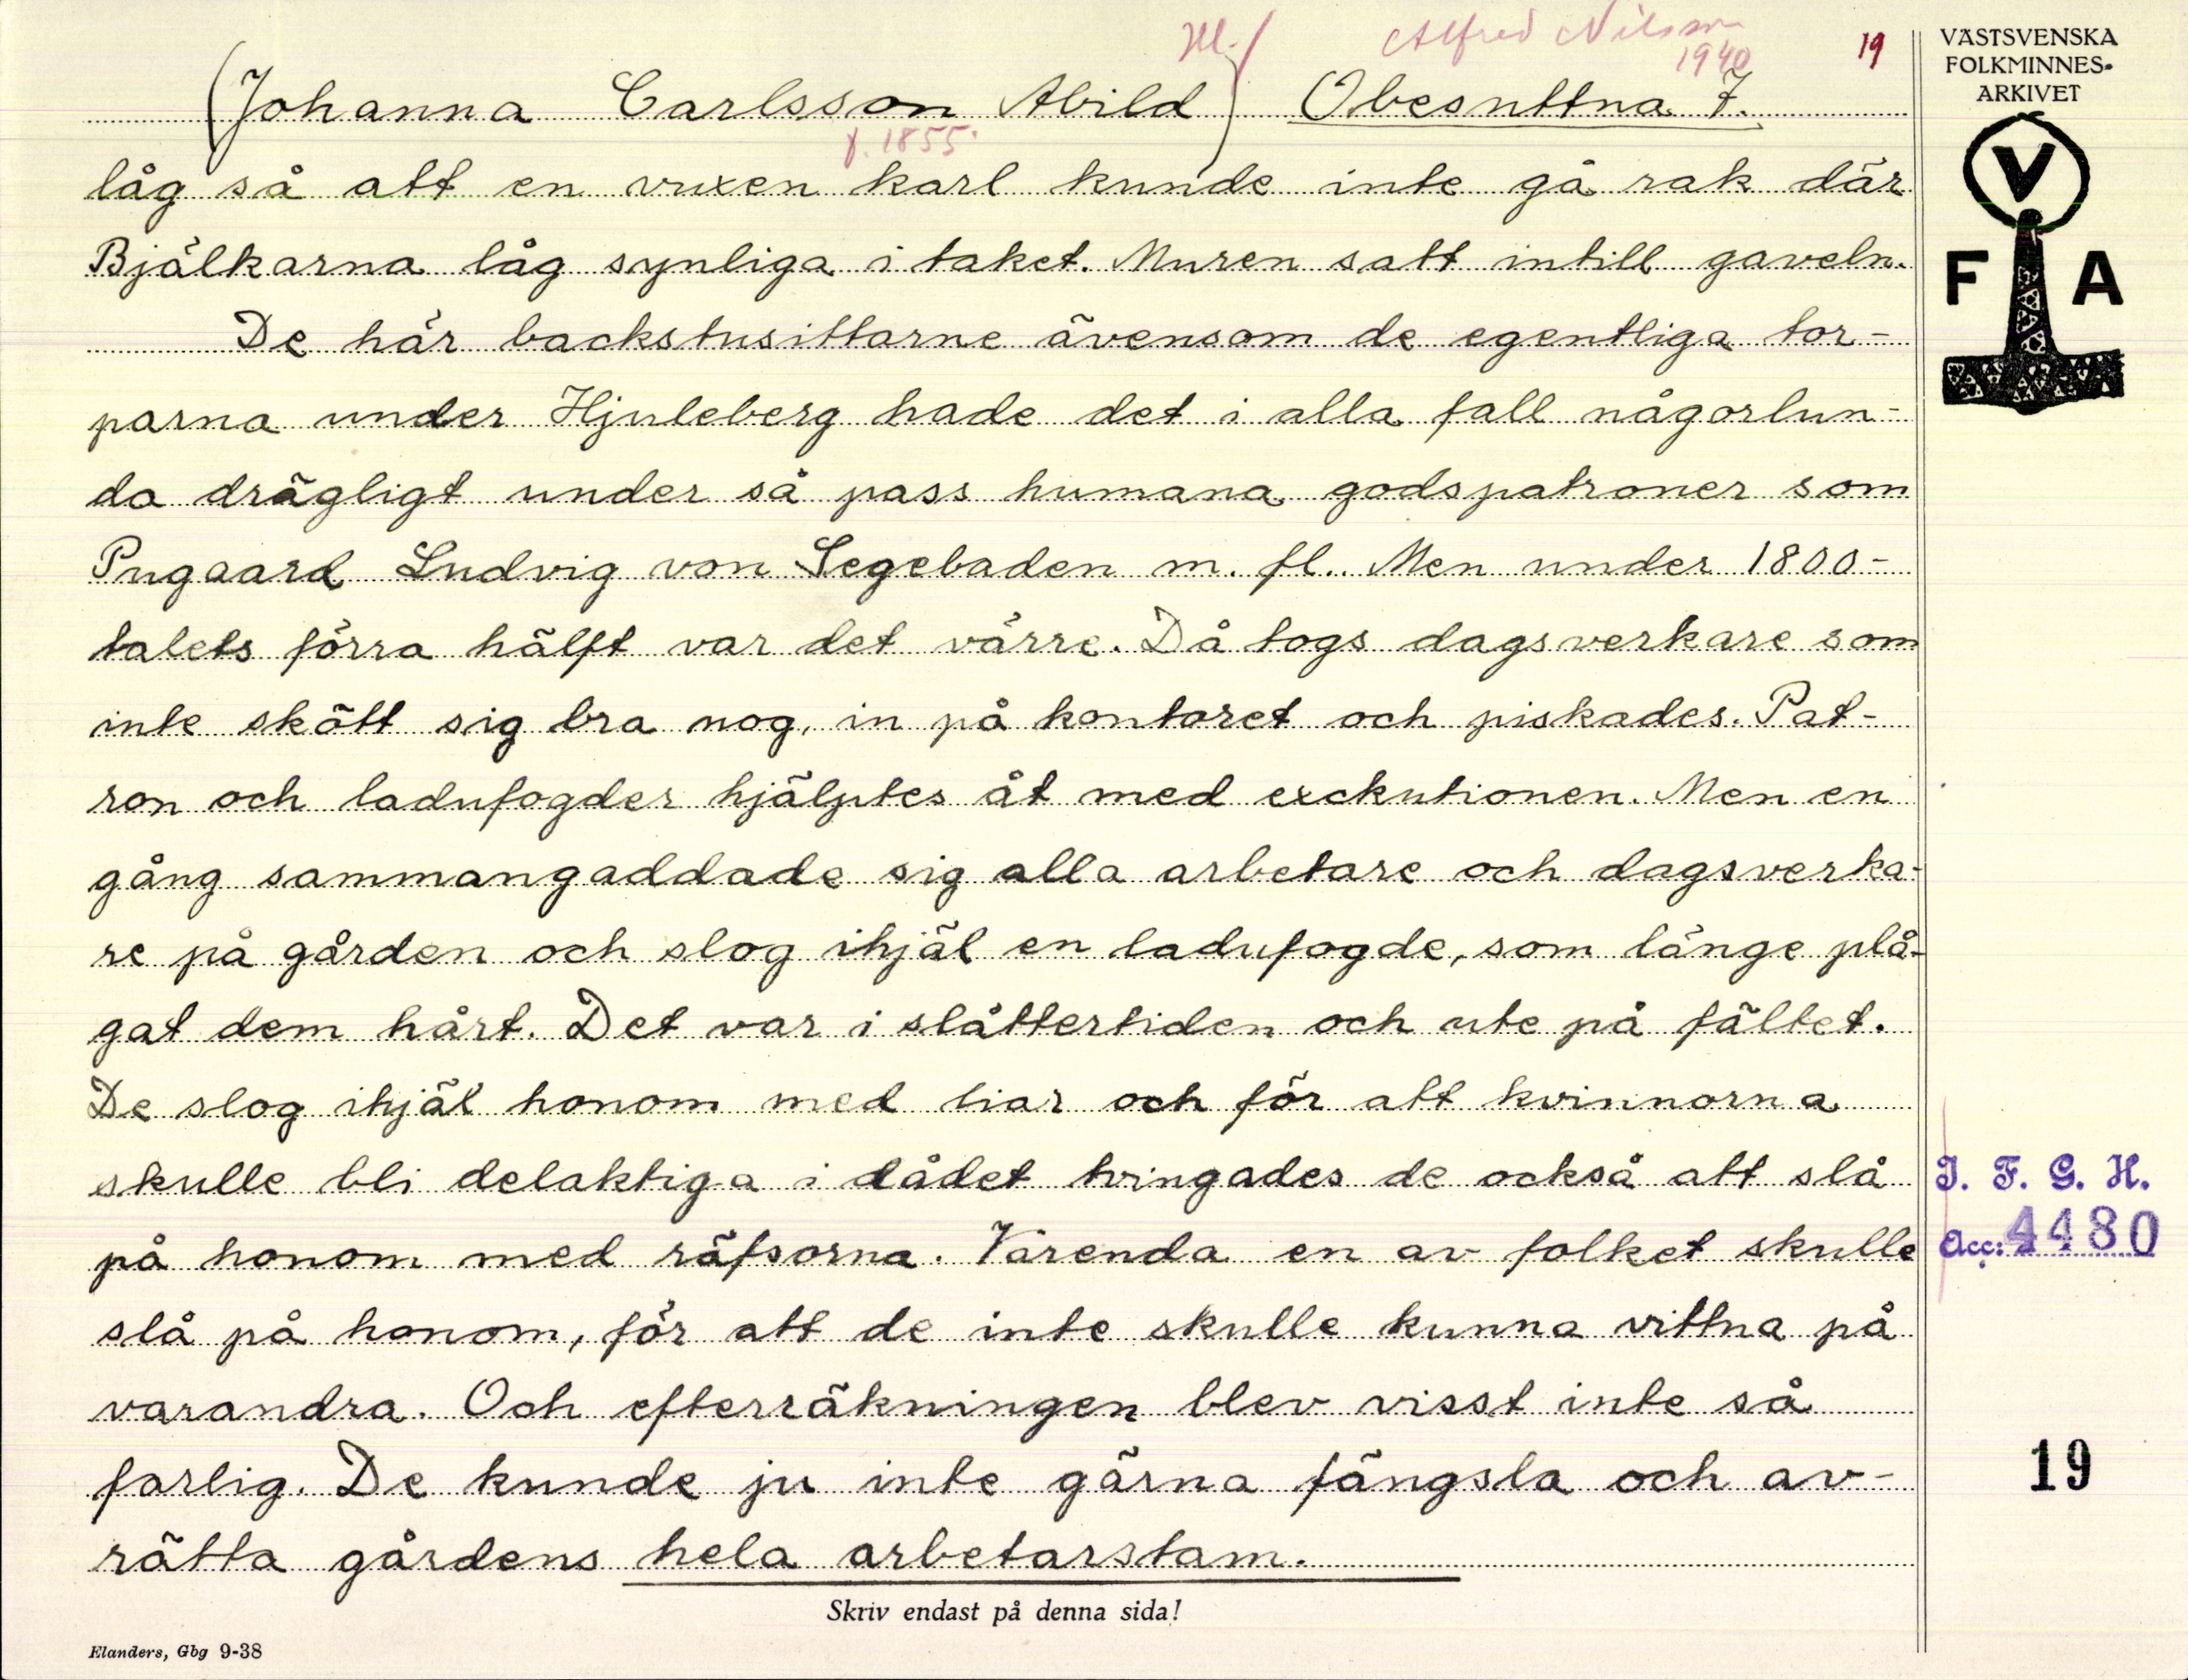 Alfred Nilsson
1940
19
(Johanna Carlsson Abild) Obesuttna 7.
f. 1855
låg så att en vuxen karl kunde inte gå rak där
Bjälkarna låg synliga i taket. Muren satt intill gaveln.
De här backstusittarne ävensom de egentliga tor-
parna under Hjuleberg hade det i alla fall någorlun-
da drägligt under så pass humana godspatroner som
Pugaard Ludvig von Segebaden m. fl.. Men under 1800-
talets förra hälft var det värre. Då togs dagsverkare som
inte skött sig bra nog, in på kontoret och piskades. Pat-
ron och ladufogder hjälptes åt med exekutionen. Men en
gång sammangaddade sig alla arbetare och dagsverka-
re på gården och slog ihjäl en ladufogde, som länge plå-
gat dem hårt. Det var i slåttertiden och ute på fältet.
De slog ihjäl honom med liar och för att kvinnorna
skulle bli delaktiga i dådet tvingades de också att slå
på honom med räfsorna. Varenda en av folket skulle
slå på honom, för att de inte skulle kunna vittna på
varandra. Och efterräkningen blev visst inte så
farlig. De kunde ju inte gärna fängsla och av-
rätta gårdens hela arbetarstam.
Skriv endast på denna sida!
Elanders, Gbg 9-38
VÄSTSVENSKA
FOLKMINNES-
ARKIVET
V
F A
I. F. G. H.
Acc: 4480
19